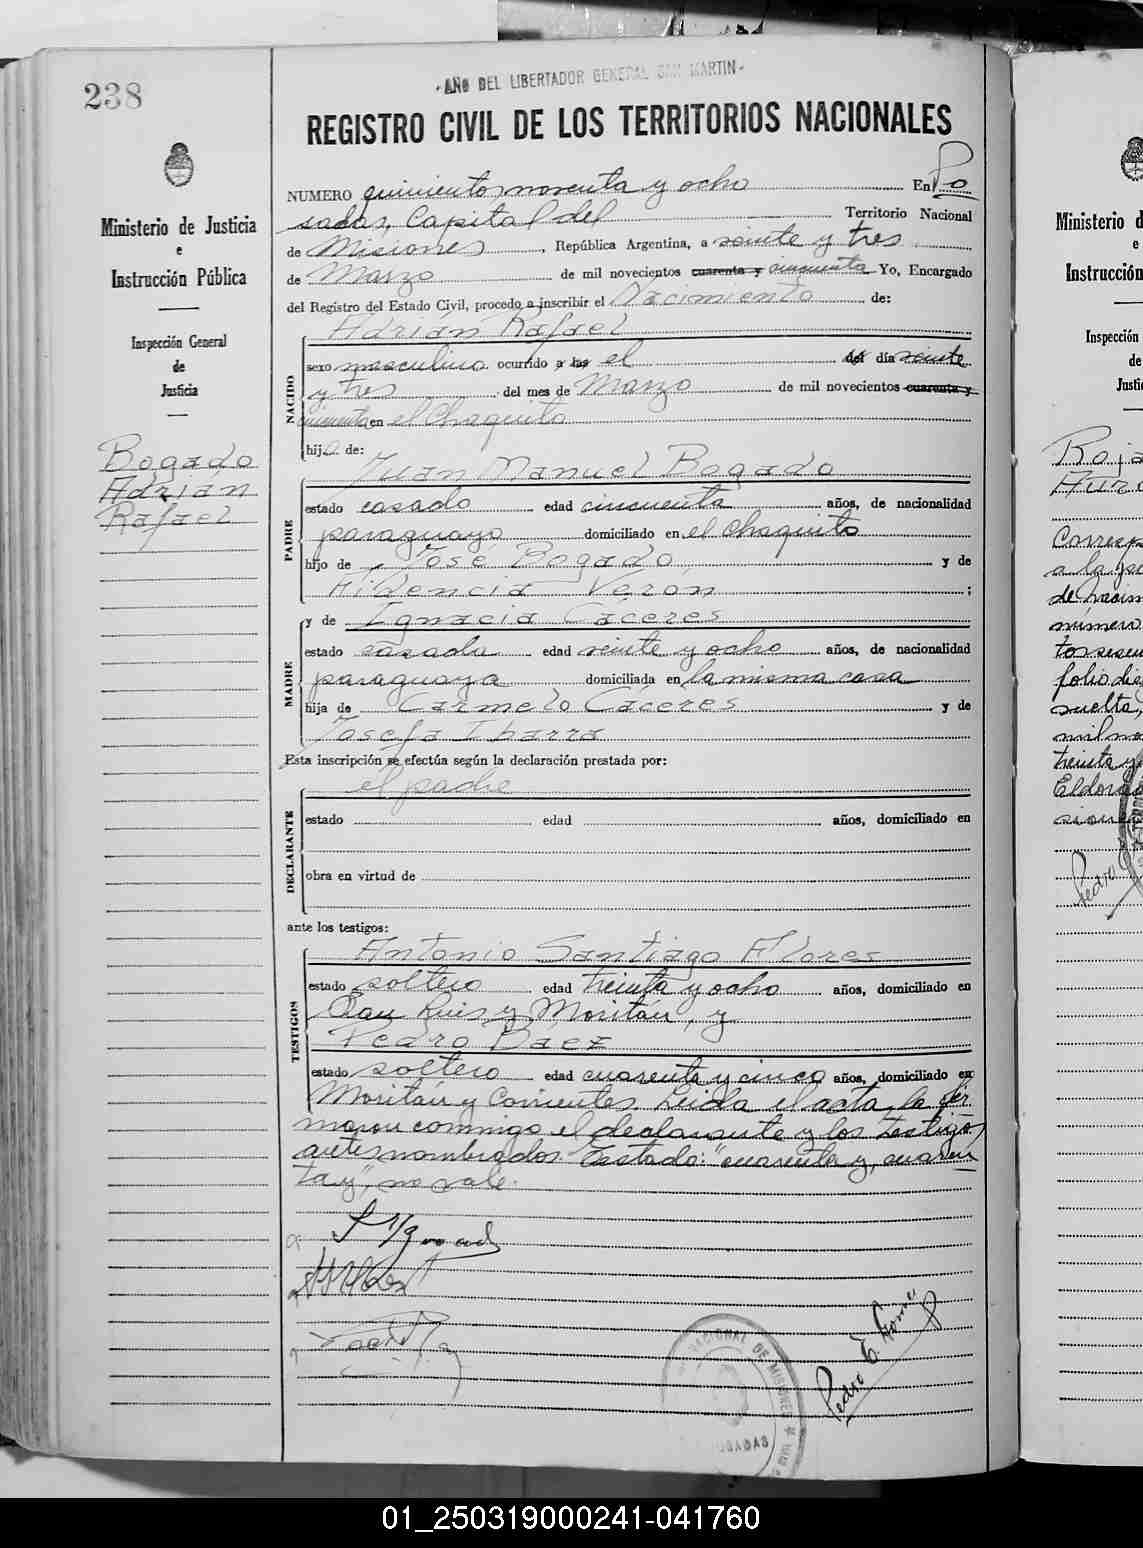 238
-AÑO DEL LIBERTADOR GENERAL SAN MARTIN-
REGISTRO CIVIL DE LOS TERRITORIOS NACIONALES
Ministerio de Justicia
e
Instrucción Pública
Inspección General
de
Justicia
Bogado
Adrián
Rafael
NUMERO quinientos noventa y ocho En Po
sadas, Capital del Territorio Nacional
de Misiones, República Argentina, a veinte y tres
de Marzo de mil novecientos cuarenta y cincuenta Yo, Encargado
del Registro del Estado Civil, procedo a inscribir el Nacimiento de:
NACIDO
Adrian Rafael
sexo masculino ocurrido a las el del día veinte
y tres del mes de Marzo de mil novecientos cuarenta y
cincuenta en el Chaquito
hijo de:
PADRE
Juan Manuel Bogado
estado casado edad cincuenta años, de nacionalidad
paraguayo domiciliado en el chaquito
hijo de José Bogado y de
Fidencia Verón ;
MADRE
y de Ignacia Cáceres
estado casada edad veinte y ocho años, de nacionalidad
paraguaya domiciliada en la misma casa
hija de Carmelo Cáceres y de
Josefa Ibarra
Esta inscripción se efectúa según la declaración prestada por:
el padre
DECLARANTE
estado edad años, domiciliado en
obra en virtud de
ante los testigos:
TESTIGOS
Antonio Santiago Flores
estado soltero edad treinta y ocho años, domiciliado en
San Luis y Moritán, y
Pedro Baez
estado soltero edad cuarenta y cinco años, domiciliado en
Moritán y Corrientes. Leida el acta, la fir
maron conmigo el declarante y los testigos
antes nombrados. Testado: "cuarenta y, cuaren
ta y", no vale.
Pedro E.
NACIONAL DE MISIONES
POSADAS
Ministerio d
e
Instrucción
Inspección
de
Justi
Roja
Corresp
de nacim
número
folio
suelta,
mil no
treinta y
Eldorado
Pedro
01_250319000241-041760